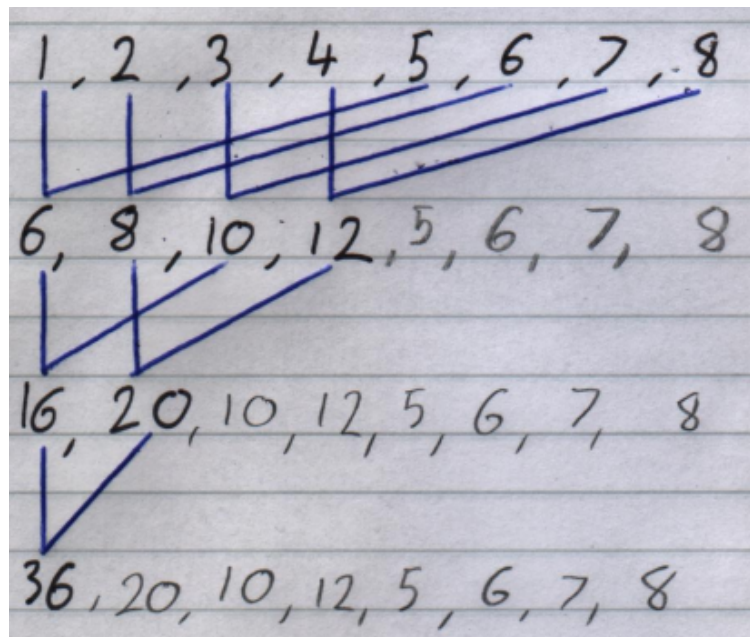 1, 2, 3, 4, 5, 6, 7, 8
6, 8, 10, 12, 5, 6, 7, 8
16, 20, 10, 12, 5, 6, 7, 8
36, 20, 10, 12, 5, 6, 7, 8